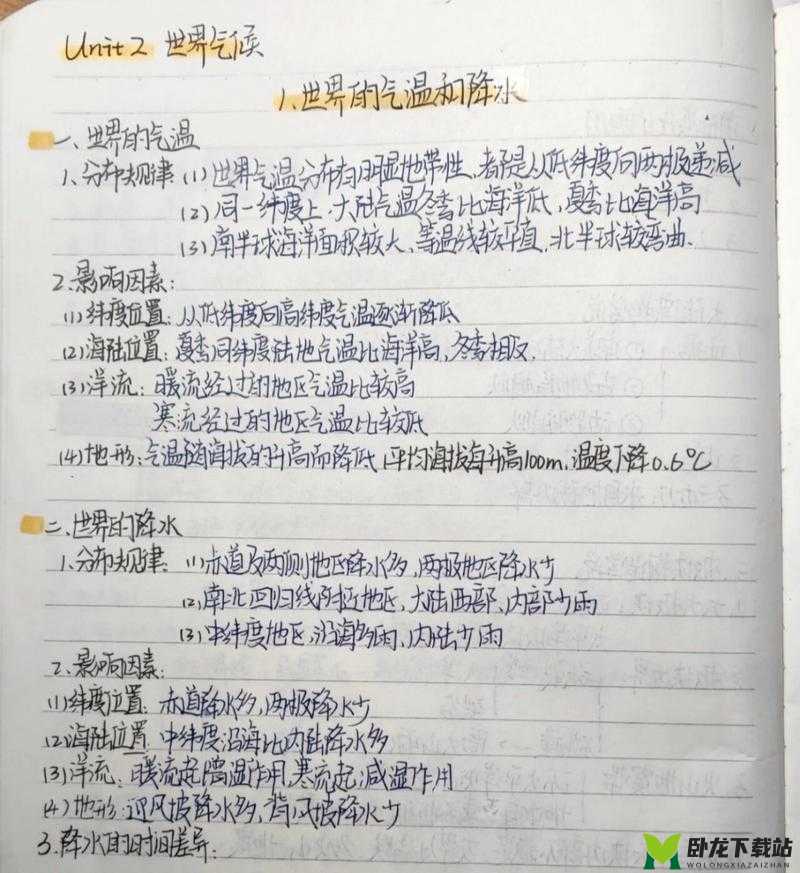 Unit 2 世界气候
1.世界的气温和降水
一、世界的气温
1、分布规律:(1)世界气温分布有明显地带性,都是从低纬度向两极递减
(2)同一纬度上,大陆气温冬季比海洋低,夏季比海洋高
(3)南半球海洋面积较大,等温线较平直,北半球较弯曲.
2.影响因素:
(1)纬度位置:从低纬度向高纬度气温逐渐降低
(2)海陆位置:夏季同纬度陆地气温比海洋高,冬季相反,
(3)洋流:暖流经过的地区气温比较高
寒流经过的地区气温比较低
(4)地形:气温随海拔的升高而降低,平均海拔每升高100m,温度下降0.6℃
二、世界的降水
1.分布规律:(1)赤道及两侧地区降水多,两极地区降水少
(2)南北回归线附近地区,大陆西部、内部少雨
(3)中纬度地区,沿海多雨,内陆少雨
2、影响因素:
(1)纬度位置:赤道降水多,两极降水少
(2)海陆位置:中纬度沿海比内陆降水多
(3)洋流:暖流起增温作用,寒流起减湿作用
(4)地形:迎风坡降水多,背风坡降水少
3.降水的时间差异:
卧龙下载站
WOLONGXIAZAIZHAN